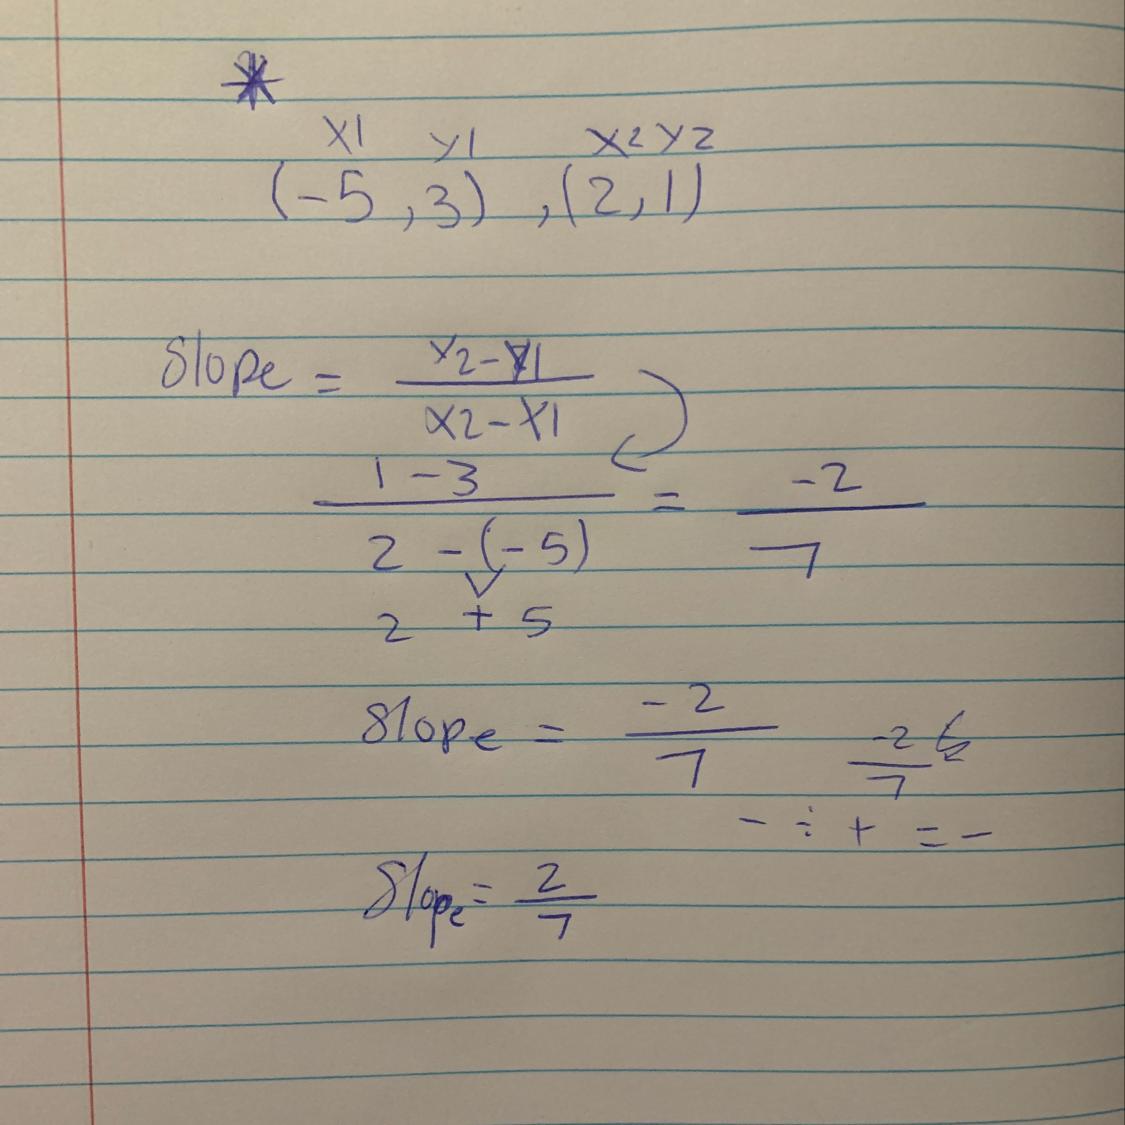 *
x1 y1 x2 y2
(-5, 3), (2, 1)
Slope = \frac{y2-y1}{x2-x1}
\frac{1-3}{2-(-5)} = \frac{-2}{7}
2 + 5
Slope = \frac{-2}{7} \frac{-2}{7}
- ÷ + = -
Slope = \frac{2}{7}